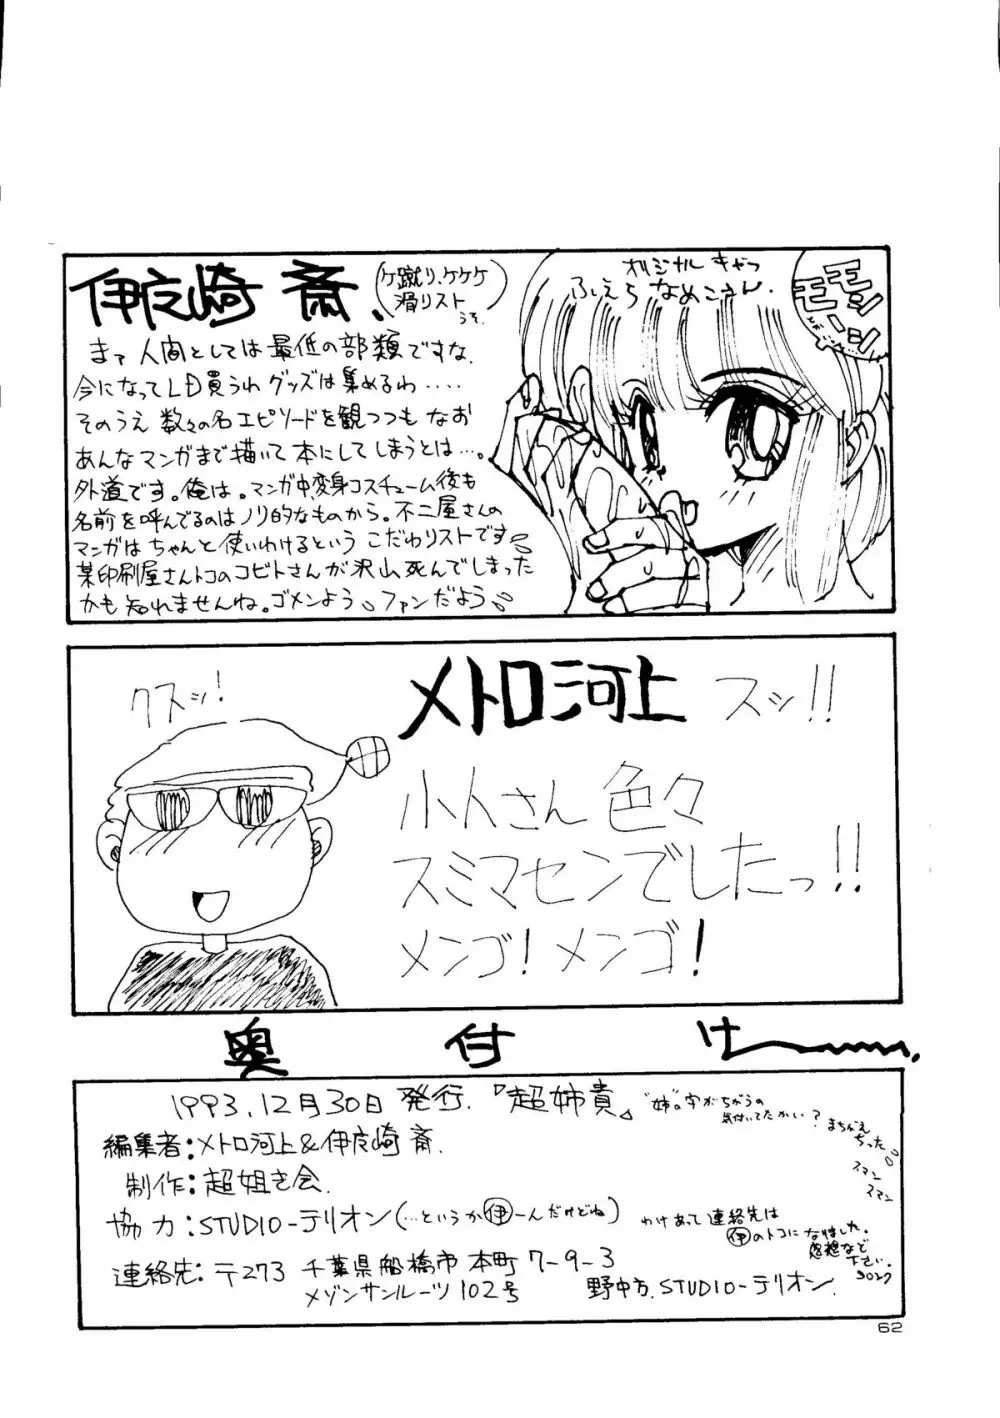 伊良崎 斎、(ケ蹴り、ケケケ
滑リスト
うそ。)
まて 人間としては 最低の部類ですな。
今になってLD買うわ グッズは集めるわ・・・・
そのうえ 数々の名エピソードを観つつも なお
あんなマンガまで描いて本にしてしまうとは…。
外道です。俺は。マンガ中変身コスチューム後も
名前を呼んでるのはノリ的なものから。不二屋さんの
マンガは ちゃんと使いわけるという こだわリストです。
某印刷屋さんトコのコビトさんが沢山死んでしまった
かも知れませんね。ゴメンよう。ファンだよう。
オリジナル キャラ
ふえら なめこさん.
モシ
モーシ
クスッ!
メトロ河上 スッ!!
小人さん 色々
スミマセンでしたっ!!
メンゴ! メンゴ!
奥付け
1993.12月30日 発行.『超姉貴』
"姉"の字がちがうの
気付いてたかい?
まちがえ
ちった。
スマン
スマン
編集者:メトロ河上&伊良崎 斎.
制作:超姐き会.
協力:STUDIO-テリオン(…というか㋑伊一人だけどね)
わけあって連絡先は
伊のトコになりました。
感想など
下さい。
連絡先:〒273 千葉県船橋市 本町 7-9-3
メゾンサンルーツ102号 野中方.STUDIO-テリオン.
62